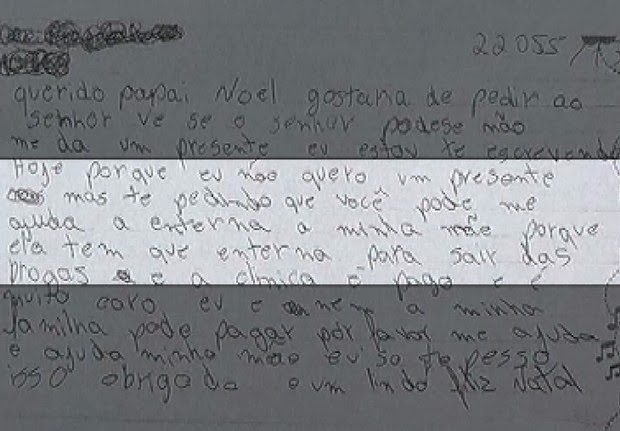 22055
querido papai Noel gostaria de pedir ao
senhor ve se o senhor podese não
me da um presente eu estou te escrevendo
Hoje porque eu não quero um presente
mas te pedindo que você pode me
ajuda a enterna a minha mãe porque
ela tem que enterna para sair das
drogas e a clinica e pago e é
muito caro eu e nem a minha
familha pode pagar por favor me ajuda
e ajuda minha mãe eu so te pesso
isso obrigado e um lindo feliz Natal